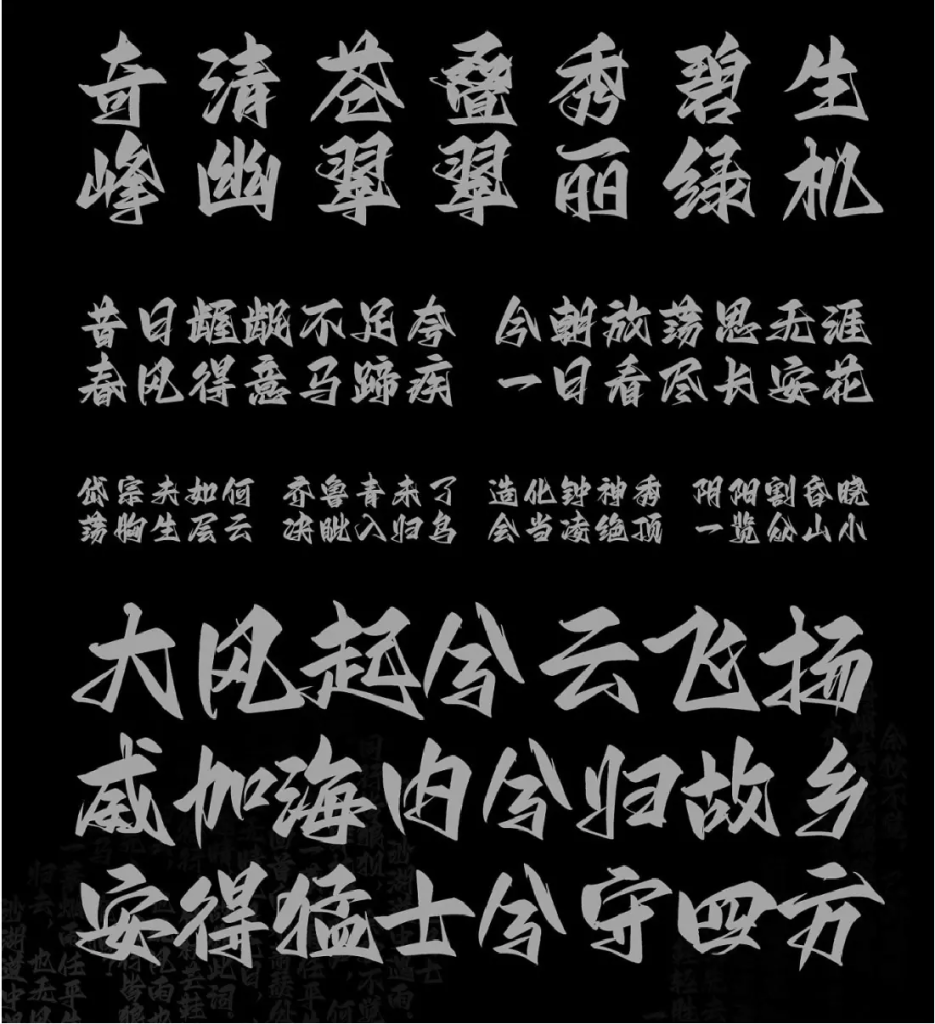 奇 清 苍 叠 秀 碧 生
峰 幽 翠 翠 丽 绿 机
昔日龌龊不足夸 今朝放荡思无涯
春风得意马蹄疾 一日看尽长安花
岱宗夫如何 齐鲁青未了 造化钟神秀 阴阳割昏晓
荡胸生层云 决眦入归鸟 会当凌绝顶 一览众山小
大风起兮云飞扬
威加海内兮归故乡
安得猛士兮守四方